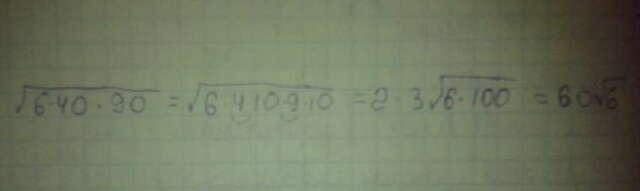 √6·40·90 = √6·4·10·9·10 = 2·3√6·100 = 60√6